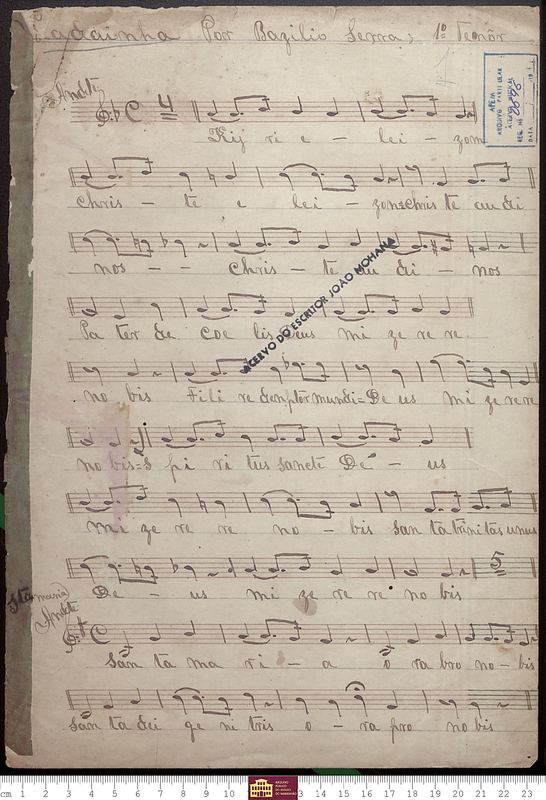 Ladainha Por Bazilio Serra; 1º Tenôr
APEM
ARQUIVO PARTICULAR
REG. Nº
DATA
Andte
4
Kij ri e - lei - zon
Chris - te e lei - zon=Chris te au di
nos - - Chris - te au di - nos
ACERVO DO ESCRITOR JOÃO MOHANA
Pa ter de Coe lis Deus mi ze re re
no bis Fi li re demptor mundi=De us mi ze re re
no bis=S pi ri tus Sancte De - us
mi ze re re no - bis San ta trinitas unus
De - us mi ze re re no bis
5
Sta maria
Andte
San ta ma ri - a o ra bro no - bis
San ta dei ge ni tris o - ra pro no bis
cm 1 2 3 4 5 6 7 8 9 10 13 14 15 16 17 18 19 20 21 22 23